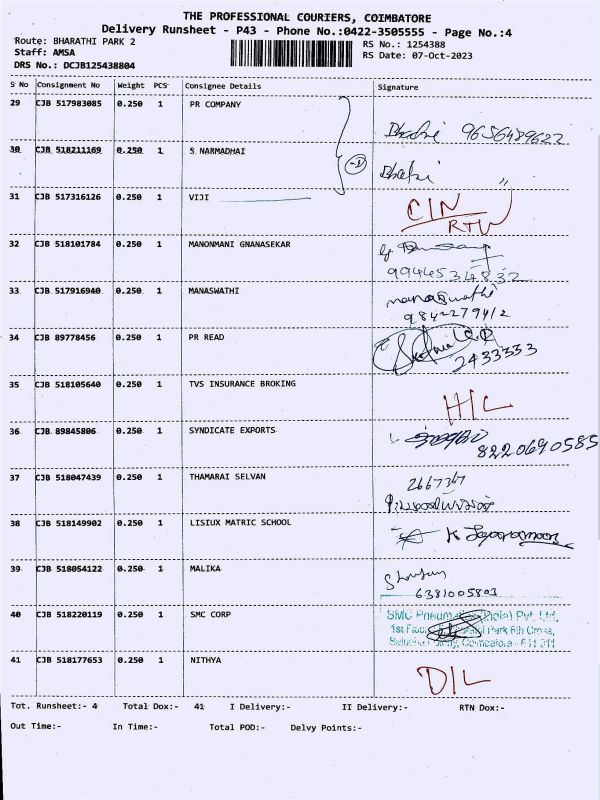 THE PROFESSIONAL COURIERS, COIMBATORE
Delivery Runsheet - P43 - Phone No.:0422-3505555 - Page No.:4
Route: BHARATHI PARK 2
Staff: AMSA
DRS No.: DCJB125438804
RS No.: 1254388
RS Date: 07-Oct-2023
S No Consignment No Weight PCS Consignee Details Signature
29 CJB 517983085 0.250 1 PR COMPANY
9656489622
30 CJB 518211169 0.250 1 S NARMADHAI
31 CJB 517316126 0.250 1 VIJI C/N
RTN
32 CJB 518101784 0.250 1 MANONMANI GNANASEKAR
9944534832
33 CJB 517916940 0.250 1 MANASWATHI manaswathi
9842279412
34 CJB 89778456 0.250 1 PR READ
2433333
35 CJB 518105640 0.250 1 TVS INSURANCE BROKING H/C
36 CJB 89845806 0.250 1 SYNDICATE EXPORTS
8220690585
37 CJB 518047439 0.250 1 THAMARAI SELVAN 2667367
38 CJB 518149902 0.250 1 LISIUX MATRIC SCHOOL K Jayaraman
39 CJB 518054122 0.250 1 MALIKA
6381005803
40 CJB 518220119 0.250 1 SMC CORP SMC Pneumatics (India) Pvt. Ltd.
1st Floor Park 6th Cross,
Coimbatore - 641 011
41 CJB 518177653 0.250 1 NITHYA D/L
Tot. Runsheet:- 4 Total Dox:- 41 I Delivery:- II Delivery:- RTN Dox:-
Out Time:- In Time:- Total POD:- Delvy Points:-